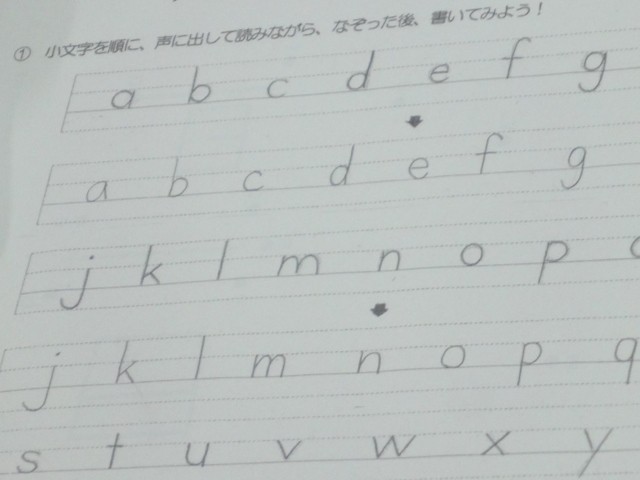 ① 小文字を順に、声に出して読みながら、なぞった後、書いてみよう！
a b c d e f g
a b c d e f g
j k l m n o p
j k l m n o p q
s t u v w x y